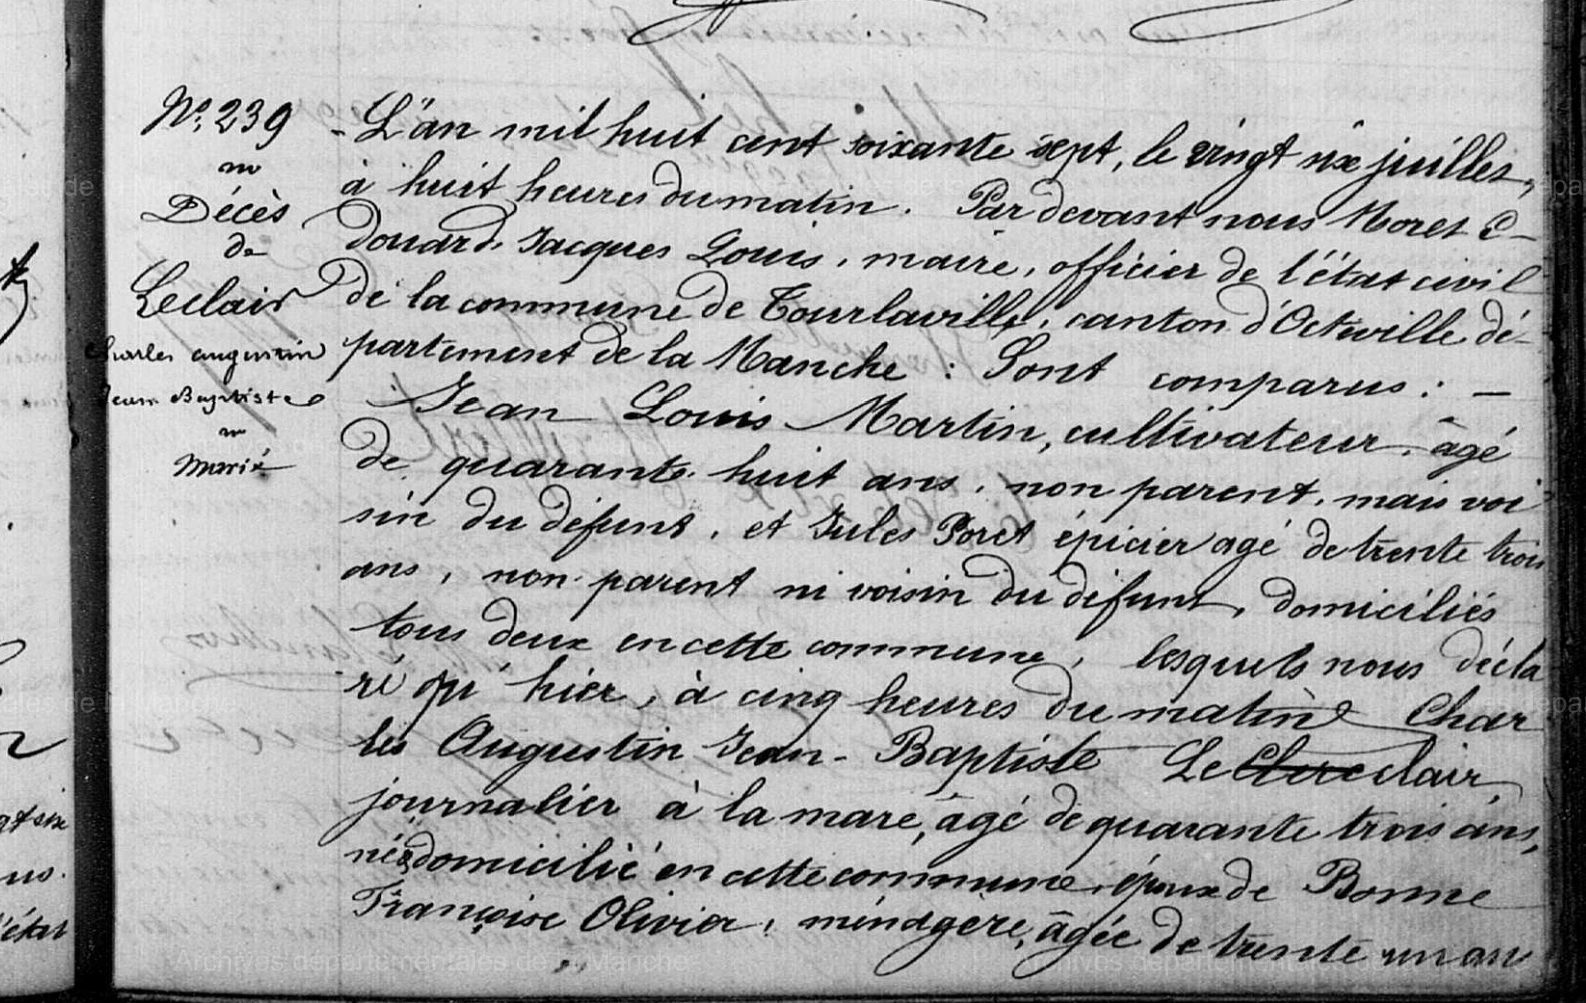 N° 239
Décès
de
Leclair
Charles augustin
Jean Baptiste
Marié
L'an mil huit cent soixante sept, le vingt six juillet,
à huit heures du matin. Par devant nous Moret E-
douard, Jacques Louis, maire, officier de l'état civil
de la commune de Tourlaville, canton d'Octeville dé-
partement de la Manche : Sont comparus : —
Jean Louis Martin, cultivateur, âgé
de quarante huit ans, non parent, mais voi
sin du défunt, et Jules Poret épicier agé de trente trois
ans, non parent ni voisin du défunt, domiciliés
tous deux en cette commune, lesquels nous décla
ré qu' hier, à cinq heures du matin Char
les Augustin Jean-Baptiste Le Clerc clair
journalier à la mare, âgé de quarante trois ans,
né & domicilié en cette commune, époux de Bonne
Françoise Olivier, ménagère, âgée de trente un an
gt six
ns.
l'état
Archives départementales de la Manche